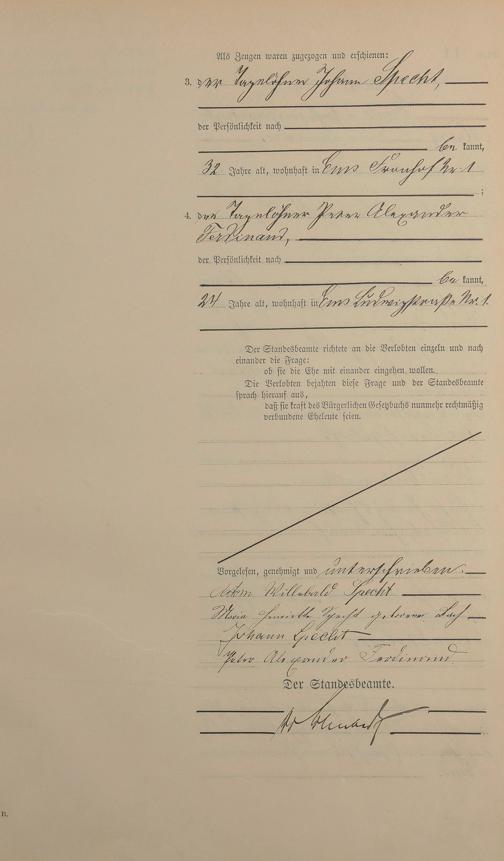 Als Zeugen waren zugezogen und erschienen:
3. der Tagelöhner Johann Specht,
der Persönlichkeit nach
be kannt,
32 Jahre alt, wohnhaft in Ems Fronhof Nr. 1
;
4. der Tagelöhner Peter Alexander
Ferdinand,
der Persönlichkeit nach
be kannt,
24 Jahre alt, wohnhaft in Ems Ludwigstraße Nr. 1.
Der Standesbeamte richtete an die Verlobten einzeln und nach
einander die Frage:
ob sie die Ehe mit einander eingehen wollen.
Die Verlobten bejahten diese Frage und der Standesbeamte
sprach hierauf aus,
daß sie kraft des Bürgerlichen Gesetzbuchs nunmehr rechtmäßig
verbundene Eheleute seien.
Vorgelesen, genehmigt und unterschrieben.
Willibald Specht
Maria Henriette Specht geborene Bach
Johann Specht
Peter Alexander Ferdinand
Der Standesbeamte.
B.